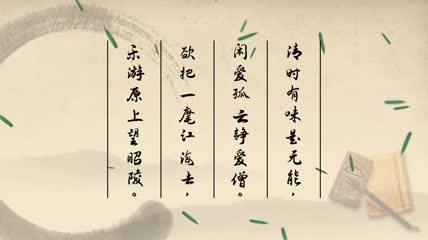 清时有味是无能，
闲爱孤云静爱僧。
欲把一麾江海去，
乐游原上望昭陵。